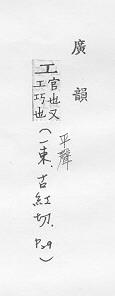 廣韻
工官也又工巧也(平聲一東.古紅切.P29)